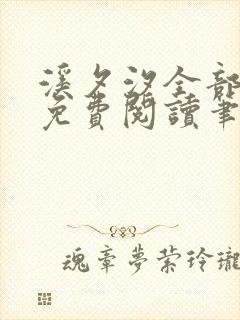 溪夕汐全部
免费閱讀筆
魂章夢縈玲瓏